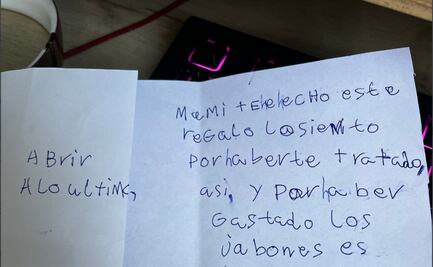 ABrir
ALOULtiMA,
MaMi + EHEHECHO este
reGALO LOSIENTO
Porhaberte tratado,
asi, y Porhaber
Gastado LOS
jabones es